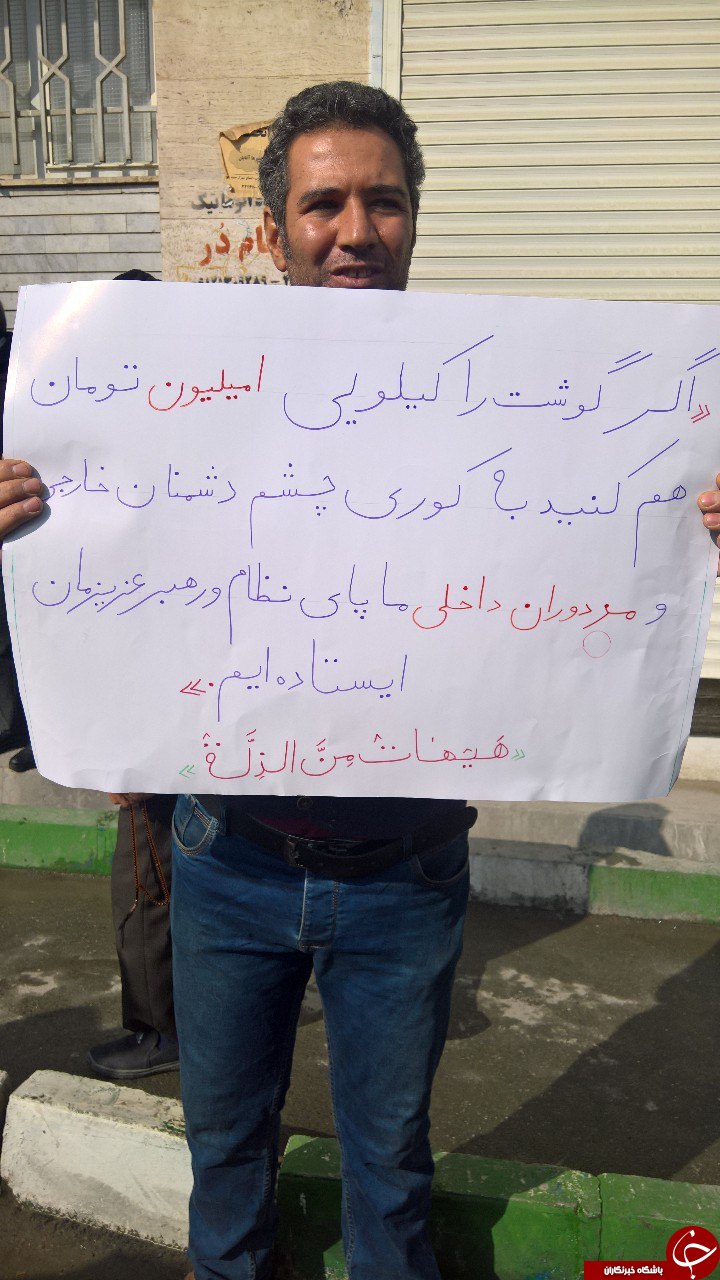 اتوماتیک
دُر
«اگر گوشت را کیلویی ۱میلیون تومان
هم کنید به کوری چشم دشمنان خارجی
و مزدوران داخلی ما پای نظام و رهبر عزیزمان
ایستاده ایم.»
«هَیْهٰاتْ مِنَّ الذِلَّةْ»
باشگاه خبرنگاران